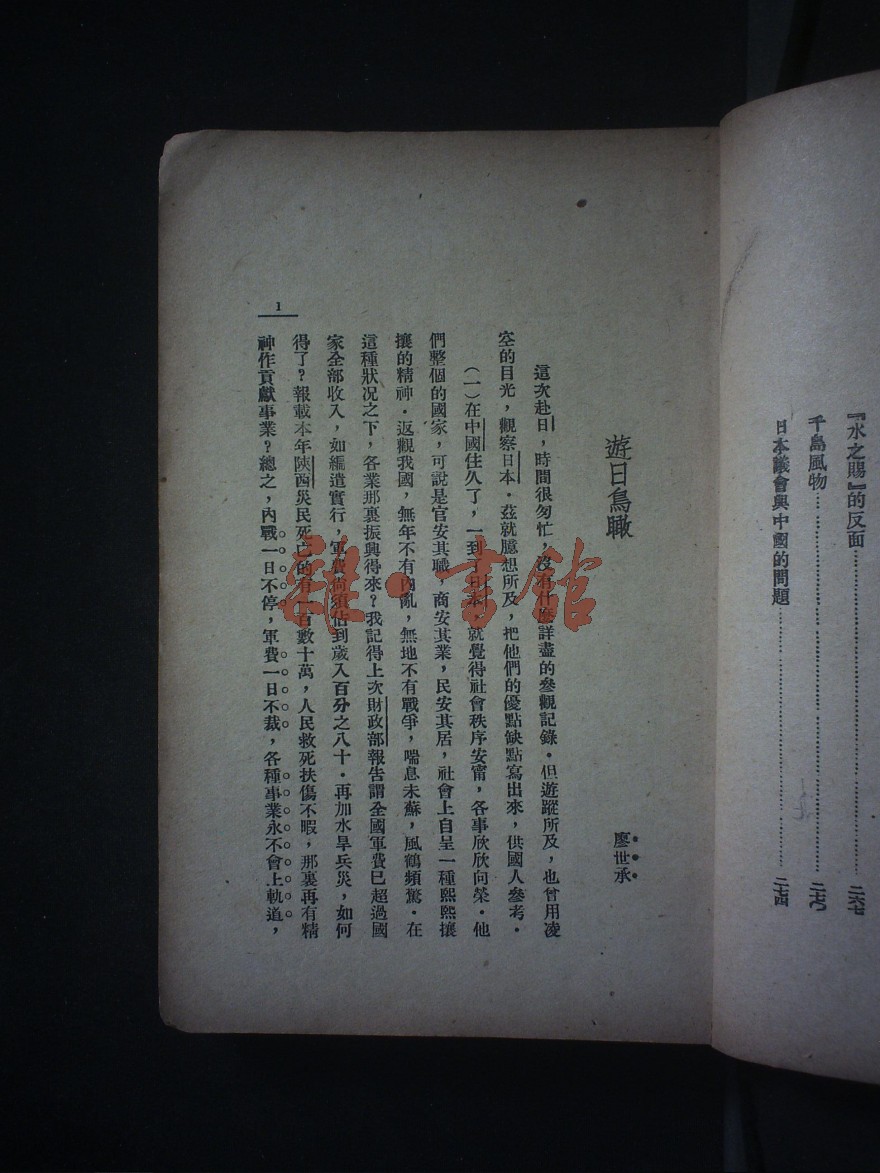 『水之賜』的反面……二六七
千島風物……二七〇
日本議會與中國的問題……二七四
遊日鳥瞰
廖世承
這次赴日，時間很匆忙，沒有什麼詳盡的參觀記錄．但遊蹤所及，也曾用凌
空的目光，觀察日本．茲就臆想所及，把他們的優點缺點寫出來，供國人參考．
（一）在中國住久了，一到了日本，就覺得社會秩序安甯，各事欣欣向榮．他
們整個的國家，可說是官安其職，商安其業，民安其居，社會上自呈一種熙熙攘
攘的精神．返觀我國，無年不有內亂，無地不有戰爭，喘息未蘇，風鶴頻驚．在
這種狀况之下，各業那裏振興得來？我記得上次財政部報告謂全國軍費已超過國
家全部收入，如編遣實行，軍費尚須佔到歲入百分之八十．再加水旱兵災，如何
得了？報載本年陝西災民死亡的有一百數十萬，人民救死扶傷不暇，那裏再有精
神作貢獻事業？總之，內戰一日不停，軍費一日不裁，各種事業永不會上軌道，
1
雜·書館